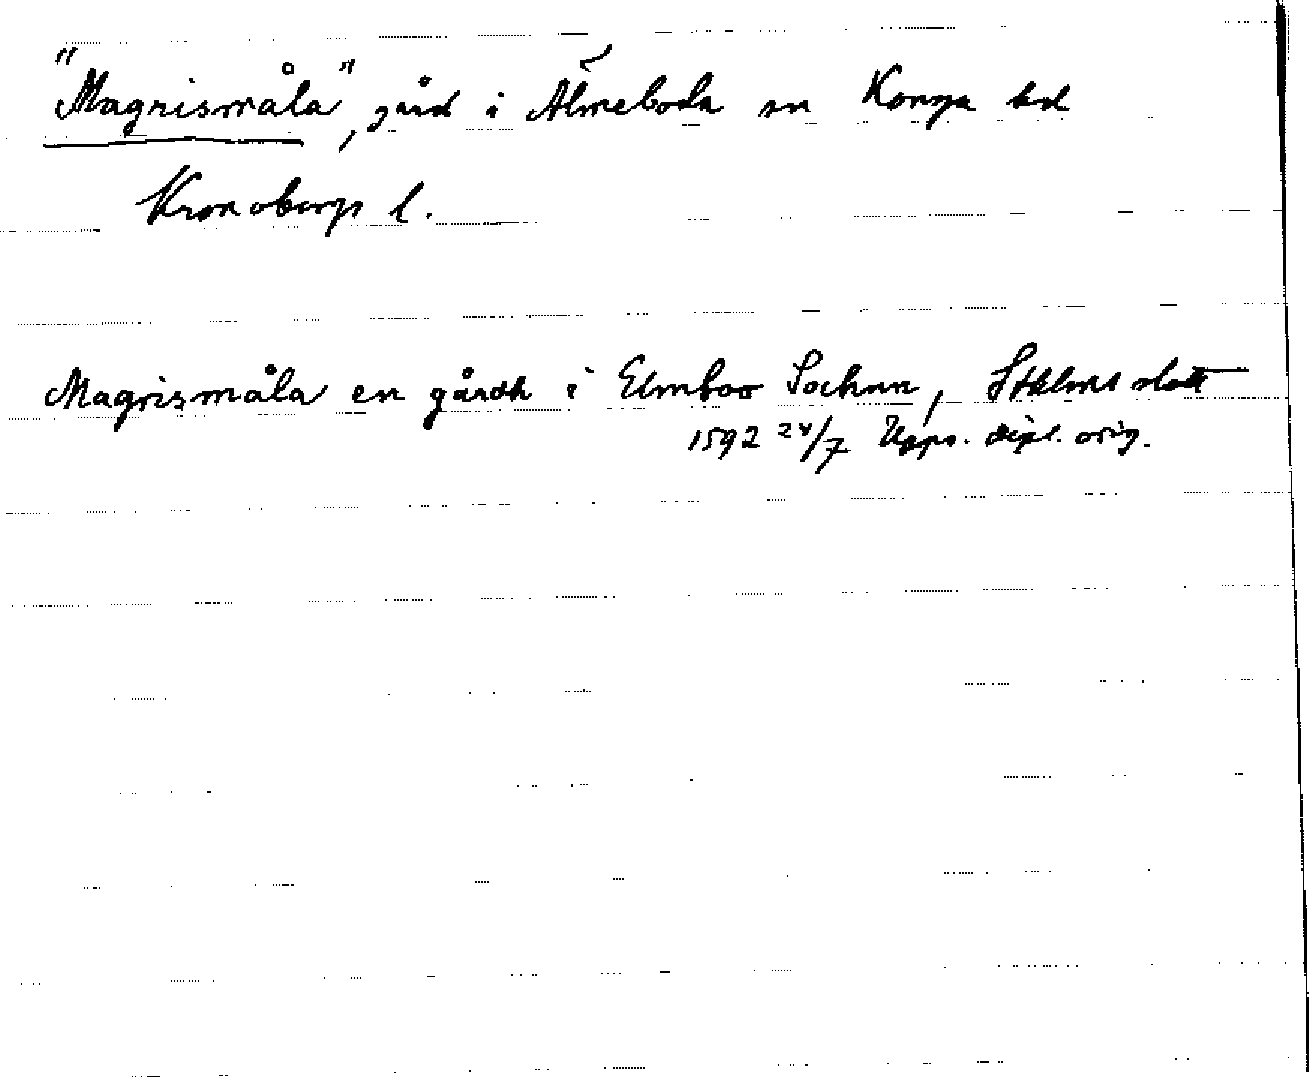 "Magnismåla", gård i Älmeboda sn Konga hd
Kronobergs l.
Magnismåla en gårdh i Elmboo Sochnn, Sthlms slott
1592 24/7 Upps. dipl. orig.